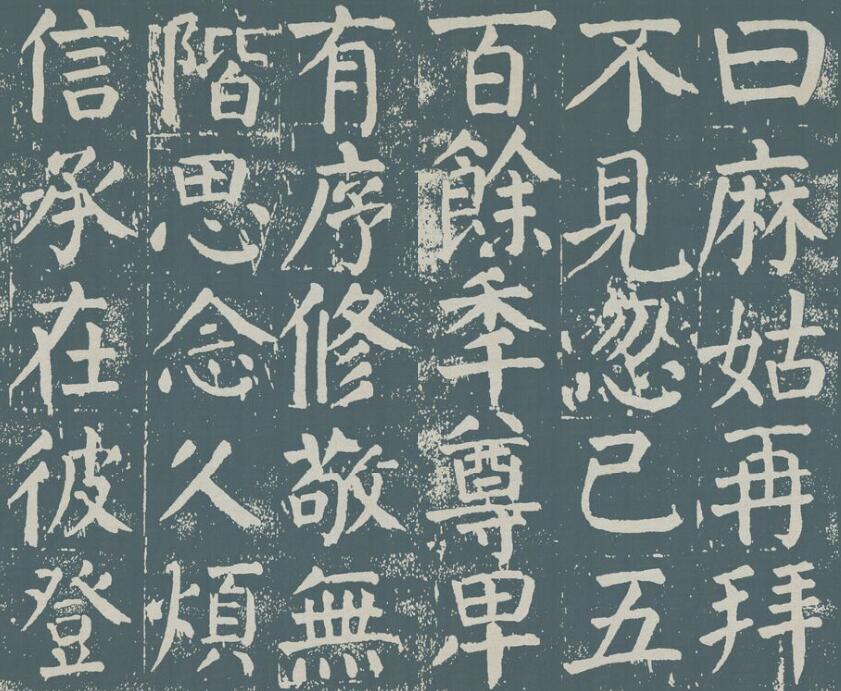 曰麻姑再拜
不見忽已五
百餘秊尊卑
有序修敬無
階思念久煩
信承在彼登